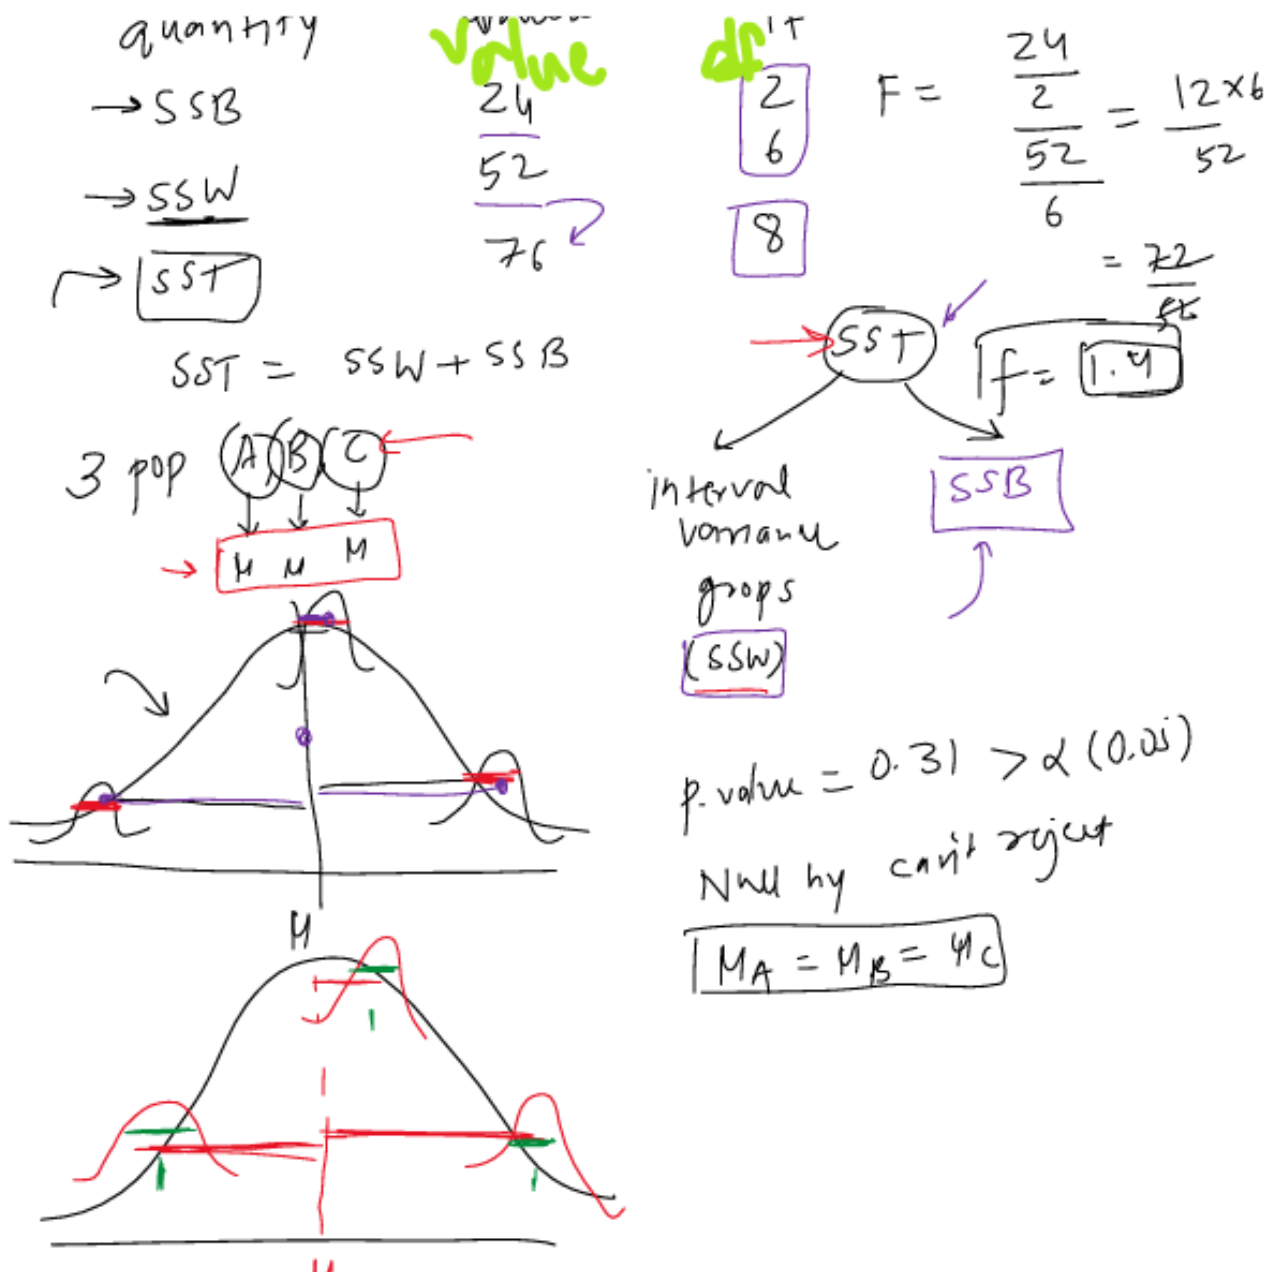 quantity value df
→ SSB 24 2
→ SSW 52 6
→ SST 76 8
F = 24/2 / 52/6 = 12×6/52
= 72/52
f = 1.4
SST = SSW + SSB
3 pop A B C
μ μ μ
SST
interval
variance
groops
(SSW)
SSB
μ
p.value = 0.31 > α (0.05)
Null hy can't reject
μA = μB = μC
μ